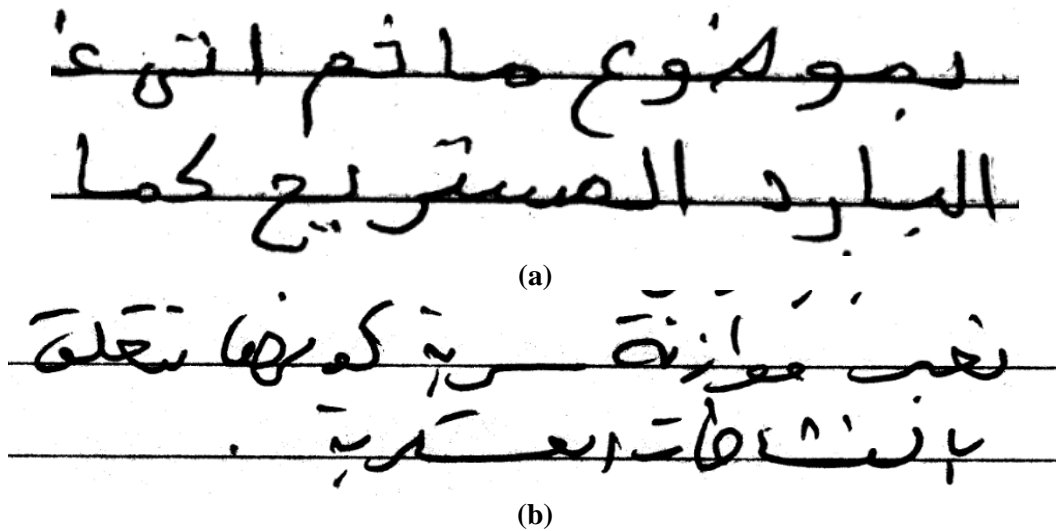 بموضوع هاتم اتى
البارد المستريح كما
(a)
موازنة سرية كونها تتعلق
بالنشاطات العسكرية .
(b)